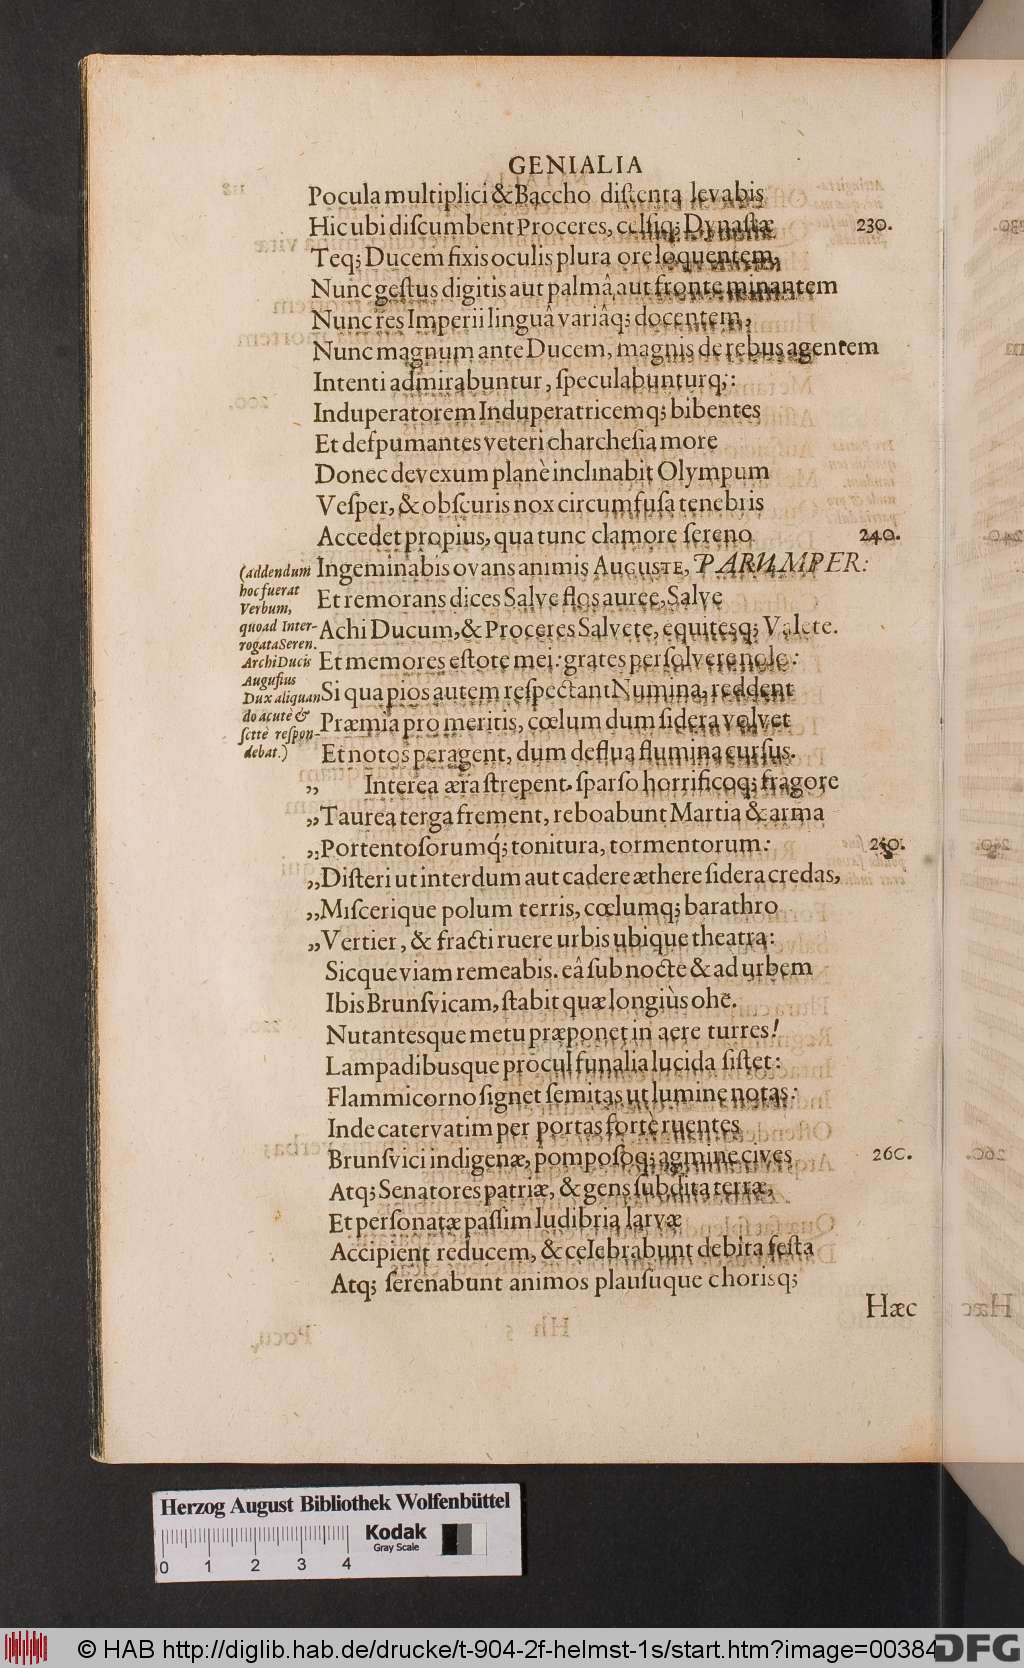 GENIALIA
Pocula multiplici & Baccho distenta levabis
Hic ubi discumbent Proceres, celsiq; Dynastæ 230.
Teq; Ducem fixis oculis plura ore loquentem,
Nunc gestus digitis aut palmâ, aut fronte minantem
Nunc res Imperii linguâ variâq; docentem,
Nunc magnum ante Ducem, magnis de rebus agentem
Intenti admirabuntur, speculabunturq;:
Induperatorem Induperatricemq; bibentes
Et despumantes veteri charchesia more
Donec devexum planè inclinabit Olympum
Vesper, & obscuris nox circumfusa tenebris
Accedet propius, qua tunc clamore sereno 240.
Ingeminabis ovans animis AUGUSTE, PARUMPER:
Et remorans dices Salve flos auree, Salve
Achi Ducum, & Proceres Salvete, equitesq; Valete.
Et memores estote mei: grates persolvere nole:
Si qua pios autem respectant Numina, reddent
Præmia pro meritis, cœlum dum sidera volvet
Et notos peragent, dum deflua flumina cursus.
(addendum
hoc fuerat
Verbum,
quoad Inter-
rogata Seren.
ArchiDucis
Augustus
Dux aliquan
do acutè &
scitè respon-
debat.)
„ Interea æra strepent, sparso horrificoq; fragore
„Taurea terga frement, reboabunt Martia & arma
„Portentosorumq́; tonitura, tormentorum: 250.
„Disteri ut interdum aut cadere æthere sidera credas,
„Miscerique polum terris, cœlumq; barathro
„Vertier, & fracti ruere urbis ubique theatra:
Sicque viam remeabis. eâ sub nocte & ad urbem
Ibis Brunsvicam, stabit quæ longiùs ohe.
Nutantesque metu præponet in aere turres!
Lampadibusque procul funalia lucida sistet:
Flammicorno signet semitas ut lumine notas:
Inde catervatim per portas fortè ruentes
Brunsvici indigenæ, pomposoq; agmine cives 260.
Atq; Senatores patriæ, & gens subdita terræ,
Et personatæ passim ludibria larvæ
Accipient reducem, & celebrabunt debita festa
Atq; serenabunt animos plausuque chorisq;
Hæc
Herzog August Bibliothek Wolfenbüttel
Kodak
Gray Scale
0 1 2 3 4
© HAB http://diglib.hab.de/drucke/t-904-2f-helmst-1s/start.htm?image=00384
DFG